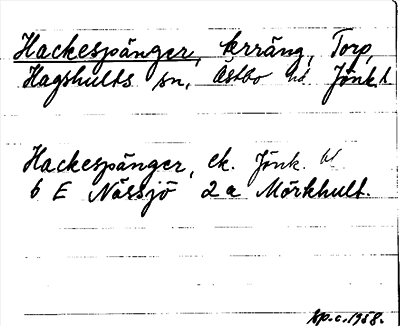 Hackespänger, terräng, Torp,
Hagshults sn, Östbo hd Jönk.l
Hackespänger, ek. Jönk. bl
6 E Nässjö 2 a Mörkhult.
1958.